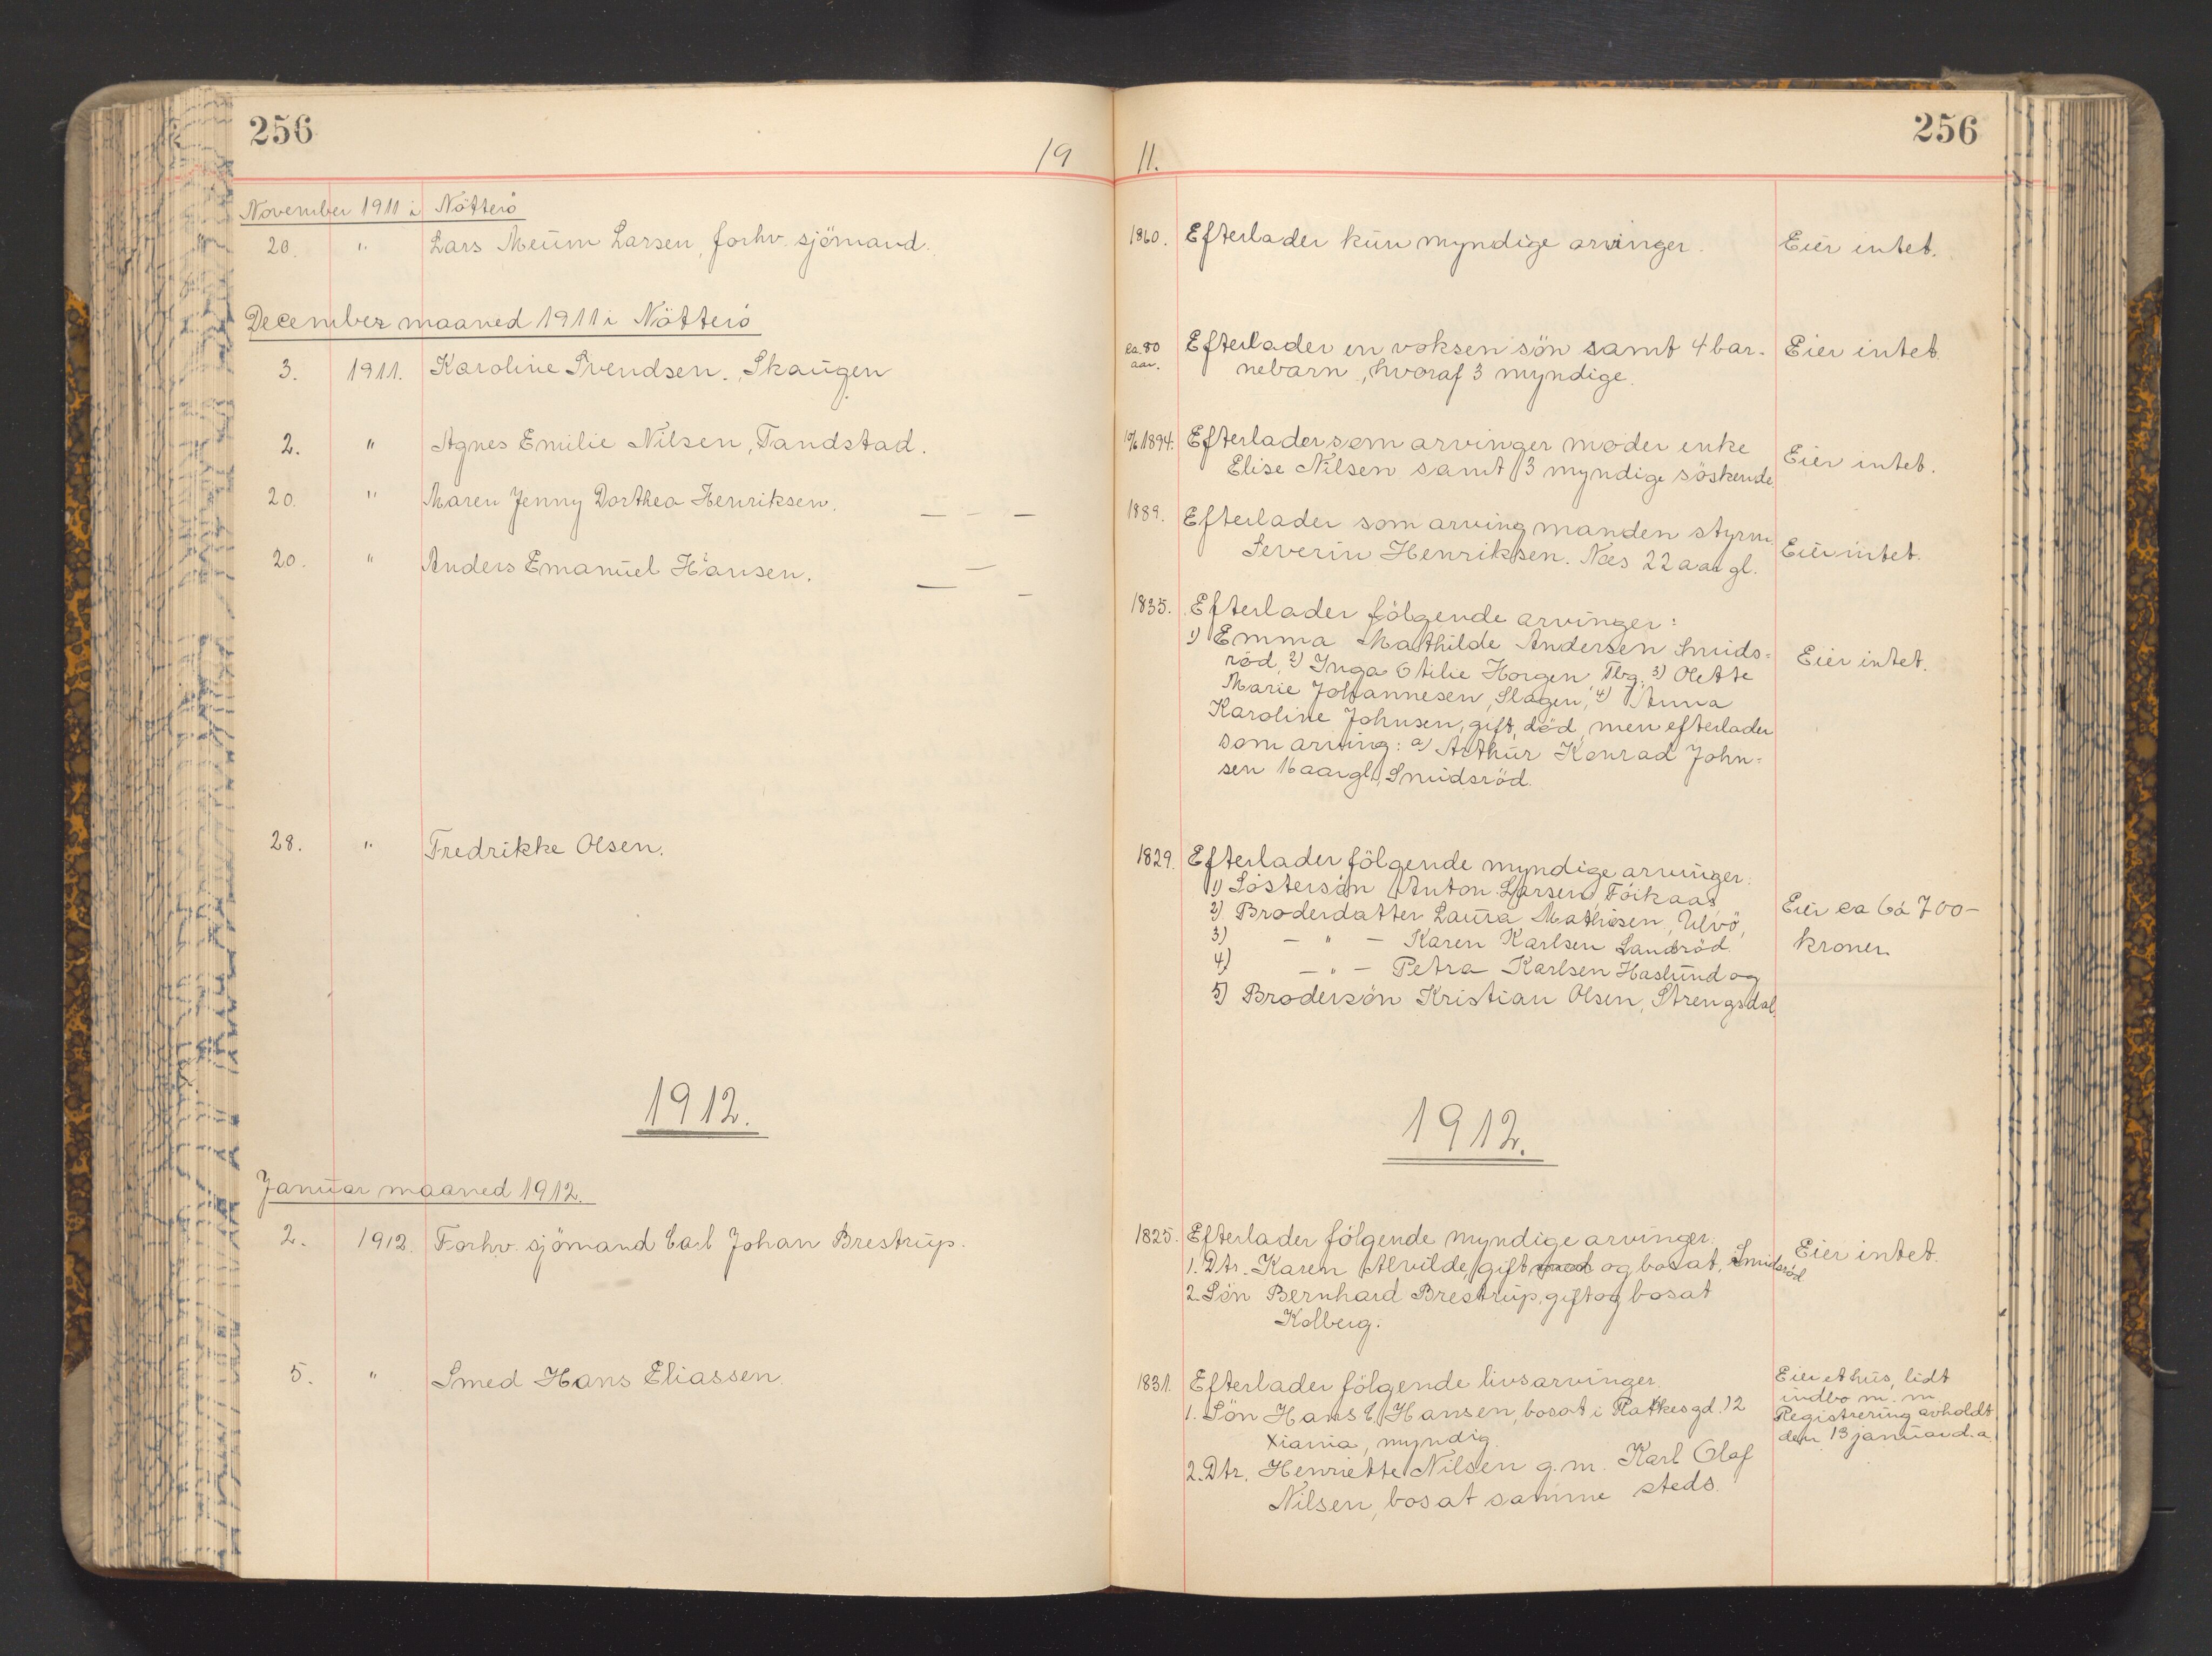 256
19
November 1911 i Nötterö
20. " Lars Meum Larsen, forhv. sjömand.
December maaned 1911 i Nötterö
3. 1911. Karoline Svendsen. Skaugen
2. " Agnes Emilie Nilsen, Tandstad.
20. " Maren Jenny Dorthea Henriksen. — — —
20. " Anders Emanuel Hansen. — — —
28. " Fredrikke Olsen.
1912.
Januar maaned 1912.
2. 1912. Forhv. sjömand Carl Johan Brestrup.
5. " Smed Hans Eliassen.
256
11.
1860. Efterlader kun myndige arvinger. Eier intet.
ca. 80 aar. Efterlader en voksen sön samt 4 bar- Eier intet.
nebarn, hvoraf 3 myndige.
1894. Efterlader som arvinger moder enke
Elise Nilsen samt 3 myndige söskende Eier intet.
1889. Efterlader som arving manden styrm.
Severin Henriksen. Næs 22 aar gl. Eier intet.
1835. Efterlader fölgende arvinger:
1) Emma Mathilde Andersen Smids=
röd, 2) Inga Otilie Horgen, Tbg. 3) Olette Eier intet.
Marie Johannesen, Slagen, 4) Anna
Karoline Johnsen, gift, död, men efterlader
som arving: a) Arthur Konrad John=
sen 16 aar gl. Smidsröd.
1829. Efterlader fölgende myndige arvinger:
1) Söstersön Anton Larsen, Föikaas
2) Broderdatter Laura Mathisen, Ulvö, Eier ca 6 á 700-
3) — " — Karen Karlsen Sandsröd. kroner.
4) — " — Petra Karlsen Haslund og
5) Brodersön Kristian Olsen, Strengsdal.
1912.
1825. Efterlader fölgende myndige arvinger:
1. Dtr. Karen Alvilde, gift med og bosat, Smidsröd Eier intet.
2. Sön Bernhard Brestrup, gift og bosat
Kolberg.
1831. Efterlader fölgende livsarvinger. Eier et hus, lidt
indbo m. m.
1. Sön Hans E. Hansen, bosat i Ratkesgd. 12 Registrering avholdt
Xiania, myndig. den 13 januar d.a.
2. Dtr. Henriette Nilsen g. m. Karl Olaf
Nilsen, bosat samme steds.